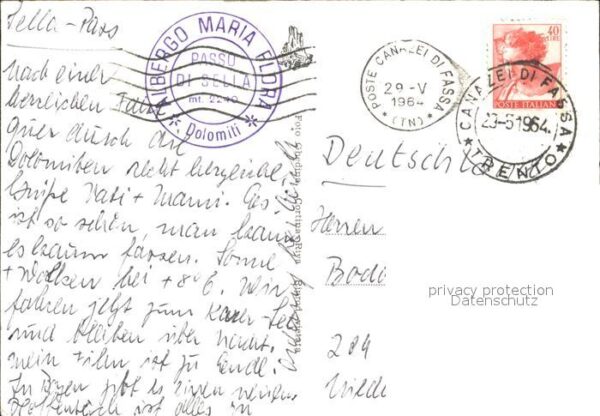 Sella-Pass
nach einer
herrlichen Fahrt
quer durch die
Dolomiten recht herzliche
Grüße Vati + Mami. Es
ist so schön, man kann
es kaum fassen. Sonne
+ Wolken bei +8°C. Wir
fahren jetzt zum Karer-See
und bleiben über Nacht.
mein Film ist zu Ende!
In Bozen gibt es einen
Hoffentlich ist alles in
ALBERGO MARIA FLORA
PASSO
DI SELLA
mt. 2240
* Dolomiti *
POSTE CANAZEI DI FASSA
29-V
1964
*(TN)*
40
LIRE
POSTE ITALIANE
CANAZEI DI FASSA
29-5 1964.
* TRENTO *
Deutschl
Herren
Bod
204
privacy protection
Datenschutz